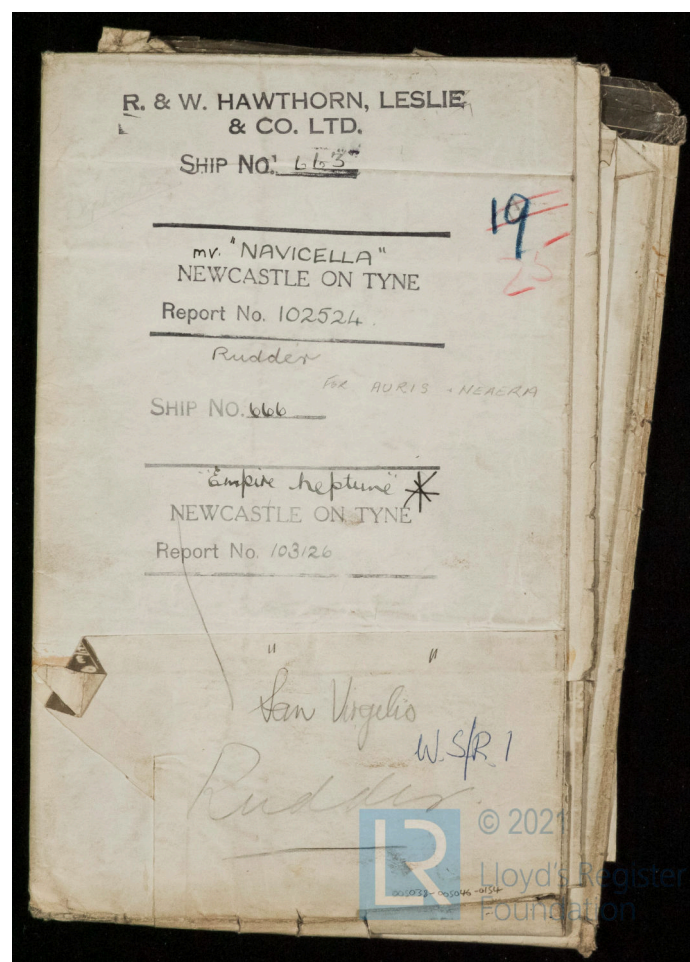 R. & W. HAWTHORN, LESLIE
& CO. LTD.
SHIP No. 663
19
mv. "NAVICELLA"
NEWCASTLE ON TYNE
Report No. 102524
Rudder
FOR AURIS & NEAERA
SHIP No. 666
"Empire Neptune" *
NEWCASTLE ON TYNE
Report No. 103126
" "
San Virgilio
W.S/R 1
Rudder.
LR
© 2021
Lloyd's Register
Foundation
005038-005046-0154